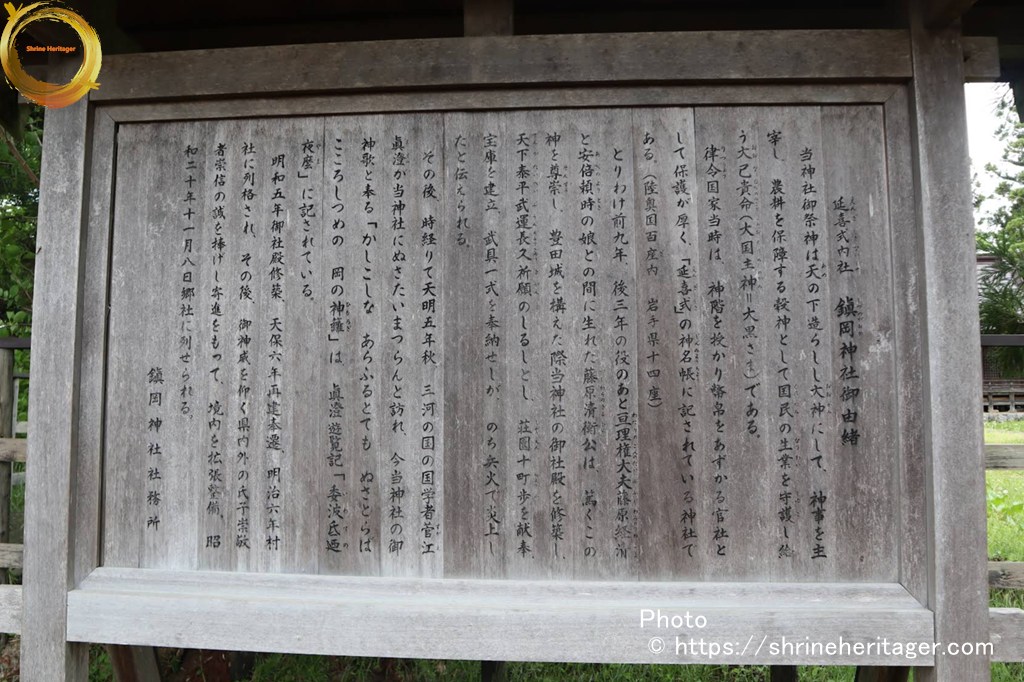 延喜式内社　鎭岡神社御由緒
当神社御祭神は天の下造らしし大神にして、神事を主
宰し、農耕を保障する穀神として国民の生業を守護し給
う大己貴命（大国主神＝大黒さま）である。
律令国家当時は、神階を授かり幣帛をあずかる官社と
して保護が厚く、「延喜式」の神名帳に記されている神社で
ある。（陸奥国百座内　岩手県十四座）
とりわけ前九年、後三年の役のあと亘理権大夫藤原経清
と安倍頼時の娘との間に生れた藤原清衡公は、篤くこの
神を尊崇し、豊田城を構えた際当神社の御社殿を修築し、
天下泰平武運長久祈願のしるしとし、荘園十町歩を献奉、
宝庫を建立、武具一式を奉納せしが、のち兵火で炎上し
たと伝えられる。
その後、時経りて天明五年秋、三河の国の国学者菅江
眞澄が当神社にぬさたいまつらんと訪れ、今当神社の御
神歌と奉る「かしこしな　あらふるとても　ぬさとらは
こころしつめの　岡の神籬」は、眞澄遊覧記「委波氐迺
夜麼」に記されている。
明和五年御社殿修築、天保六年再建奉遷、明治六年村
社に列格され、その後、御神威を仰ぐ県内外の氏子崇敬
者崇信の誠を捧げし寄進をもって、境内を拡張整備、昭
和二十年十一月八日郷社に列せられる。
鎭岡神社社務所
Shrine Heritager
Photo
© https://shrineheritager.com